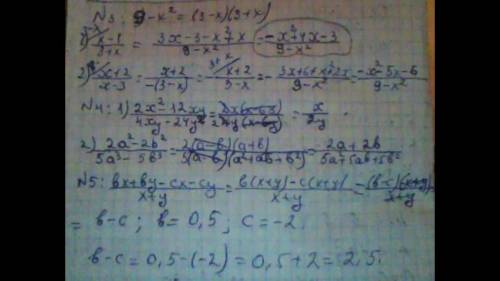 N3: 9-x² = (3-x)(3+x)
1) x-1/3+x = 3x-3-x²+x/9-x² = -x²+4x-3/9-x²
2) x+2/x-3 = x+2/-(3-x) = -x+2/3-x = -3x+6+x²+2x/9-x² = -x²-5x-6/9-x²
N4: 1) 2x²-12xy/4xy-24y² = 2x(x-6y)/24y(x-6y) = x/2y
2) 2a²-2b²/5a³-5b³ = 2(a-b)(a+b)/5(a-b)(a²+ab+b²) = 2a+2b/5a+5ab+5b²
N5: bx+by-cx-cy/x+y = b(x+y)-c(x+y)/x+y = (b-c)(x+y)/x+y
= b-c ; b=0,5 ; c=-2.
b-c = 0,5-(-2) = 0,5+2 = 2,5.